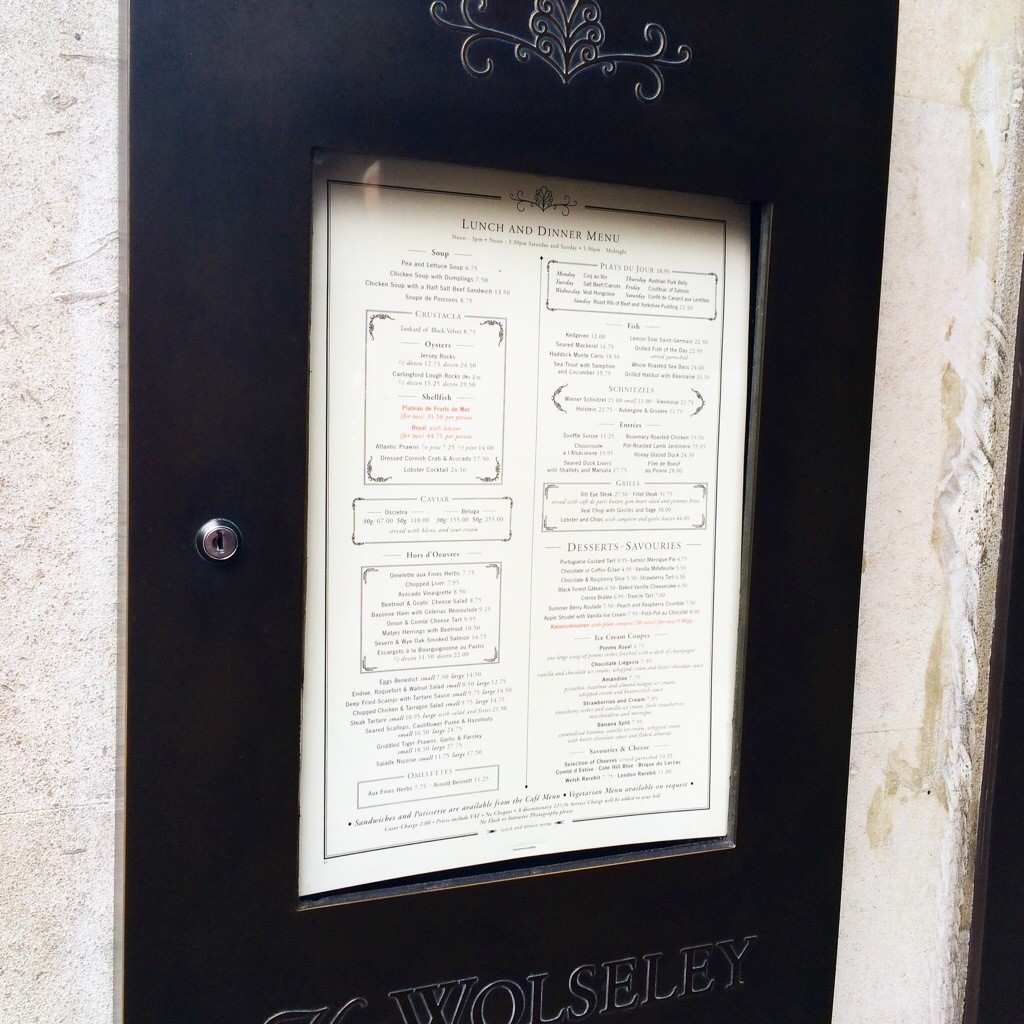 LUNCH AND DINNER MENU
Noon - 3pm • Noon - 3.30pm Saturday and Sunday • 5.30pm - Midnight
Soup
Pea and Lettuce Soup 6.75
Chicken Soup with Dumplings 7.50
Chicken Soup with a Half Salt Beef Sandwich 13.50
Soupe de Poissons 8.75
CRUSTACEA
Tankard of Black Velvet 8.75
Oysters
Jersey Rocks
½ dozen 12.75 dozen 24.50
Carlingford Lough Rocks (No 2's)
½ dozen 15.25 dozen 29.50
Shellfish
Plateau de Fruits de Mer
(for two) 31.50 per person
Royal with lobster
(for two) 44.75 per person
Atlantic Prawns ¼ pint 7.25 ½ pint 14.00
Dressed Cornish Crab & Avocado 17.50
Lobster Cocktail 24.50
CAVIAR
Oscietra Beluga
30g 67.00 50g 110.00 30g 155.00 50g 255.00
served with blinis and sour cream
Hors d'Oeuvres
Omelette aux Fines Herbs 7.75
Chopped Liver 7.95
Avocado Vinaigrette 8.50
Beetroot & Goats' Cheese Salad 8.75
Bayonne Ham with Celeriac Remoulade 9.25
Onion & Comté Cheese Tart 9.95
Matjes Herrings with Beetroot 10.50
Severn & Wye Oak-Smoked Salmon 14.75
Escargots à la Bourguignonne au Pastis
½ dozen 11.50 dozen 22.00
Eggs Benedict small 7.50 large 14.50
Endive, Roquefort & Walnut Salad small 8.50 large 12.75
Deep Fried Scampi with Tartare Sauce small 9.75 large 14.50
Chopped Chicken & Tarragon Salad small 9.75 large 14.75
Steak Tartare small 10.95 large with salad and frites 21.50
Seared Scallops, Cauliflower Purée & Hazelnuts
small 16.50 large 24.75
Griddled Tiger Prawns, Garlic & Parsley
small 18.50 large 27.75
Salade Niçoise small 11.75 large 17.50
OMELETTES
Aux Fines Herbes 7.75 - Arnold Bennett 11.25
PLÂTS DU JOUR 18.95
Monday Coq au Vin Thursday Austrian Pork Belly
Tuesday Salt Beef/Carrots Friday Coulibiac of Salmon
Wednesday Veal Hongroise Saturday Confit du Canard aux Lentilles
Sunday Roast Rib of Beef and Yorkshire Pudding 23.50
Fish
Kedgeree 12.00
Seared Mackerel 14.75
Haddock Monte Carlo 18.50
Sea Trout with Samphire
and Cucumber 19.75
Lemon Sole Saint-Germain 22.50
Grilled Fish of the Day 22.95
served garnished
Whole Roasted Sea Bass 24.00
Grilled Halibut with Bearnaise 31.50
SCHNITZELS
Wiener Schnitzel 21.00 small 11.00 - Viennoise 21.75
Holstein 22.75 - Aubergine & Gruyere 11.75
Entrées
Soufflé Suisse 11.25
Choucroute
à l'Alsacienne 15.95
Seared Duck Livers
with Shallots and Marsala 17.75
Rosemary Roasted Chicken 19.50
Pot-Roasted Lamb Jardinière 19.95
Honey Glazed Duck 24.50
Filet de Boeuf
au Poivre 28.00
GRILLS
Rib Eye Steak 27.50 - Fillet Steak 31.75
served with café de paris butter, gem heart salad and pommes frites
Veal Chop with Girolles and Sage 38.00
Lobster and Chips with samphire and garlic butter 44.00
DESSERTS-SAVOURIES
Portuguese Custard Tart 3.95 - Lemon Meringue Pie 4.75
Chocolate or Coffee Éclair 4.95 - Vanilla Millefeuille 5.50
Chocolate & Raspberry Slice 5.50 - Strawberry Tart 6.50
Black Forest Gâteau 6.50 - Baked Vanilla Cheesecake 6.50
Crème Brûlée 6.95 - Treacle Tart 7.00
Summer Berry Roulade 7.50 - Peach and Raspberry Crumble 7.50
Apple Strudel with Vanilla Ice Cream 7.95 - Petit Pot au Chocolat 8.00
Kaiserschmarren with plum compote (30 mins) (for two) 9.00pp
Ice Cream Coupes
Pimms Royal 4.75
one large scoop of pimms sorbet finished with a dash of champagne
Chocolate Liégeois 7.50
vanilla and chocolate ice creams, whipped cream and bitter chocolate sauce
Amandine 7.75
pistachio, hazelnut and almond nougat ice creams,
whipped cream and butterscotch sauce
Strawberries and Cream 7.95
strawberry sorbet and vanilla ice cream, fresh strawberries,
marshmallow and meringue
Banana Split 7.95
caramelised banana, vanilla ice cream, whipped cream
with bitter chocolate sauce and flaked almonds
Savouries & Cheese
Selection of Cheeses served garnished 10.25
Comté d'Estive - Cote Hill Blue - Brique du Larzac
Welsh Rarebit 7.75 - London Rarebit 11.00
• Sandwiches and Patisserie are available from the Café Menu • Vegetarian Menu available on request •
Cover Charge 2.00 • Prices include VAT • No Cheques • A discretionary 12½% Service Charge will be added to your bill
No Flash or Intrusive Photography please
lunch and dinner menu
WOLSELEY